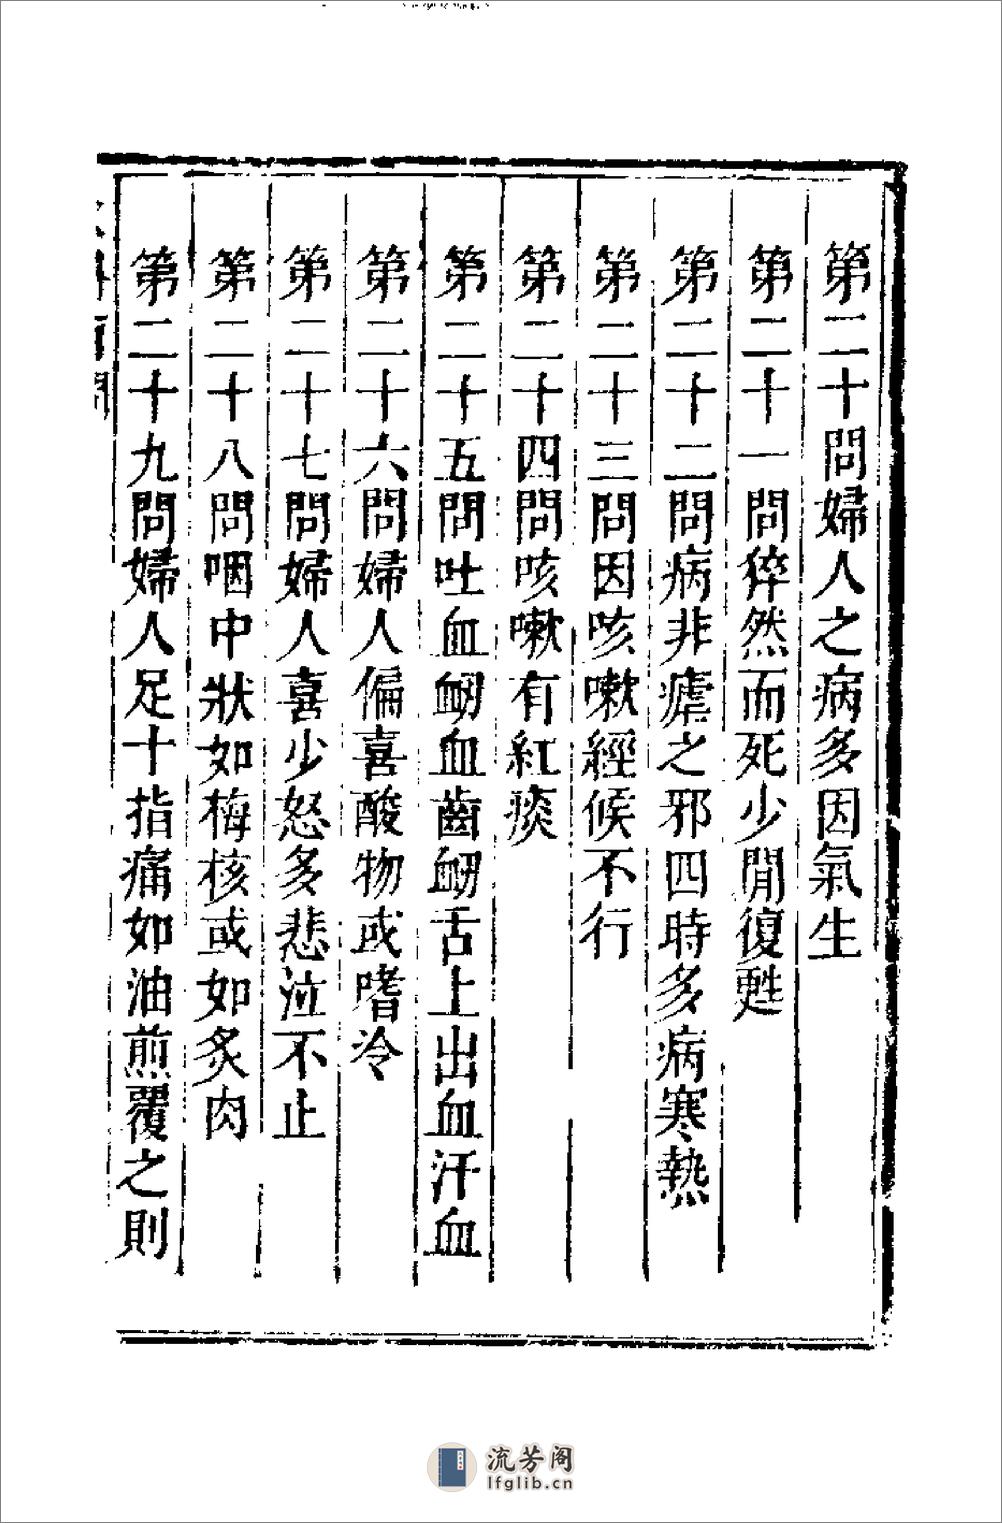 第二十問婦人之病多因氣生
第二十一問猝然而死少閒復甦
第二十二問病非瘧之邪四時多病寒熱
第二十三問因咳嗽經候不行
第二十四問咳嗽有紅痰
第二十五問吐血衂血齒衂舌上出血汗血
第二十六問婦人偏喜酸物或嗜冷
第二十七問婦人喜少怒多悲泣不止
第二十八問咽中狀如梅核或如炙肉
第二十九問婦人足十指痛如油煎覆之則
流芳阁
lfglib.cn